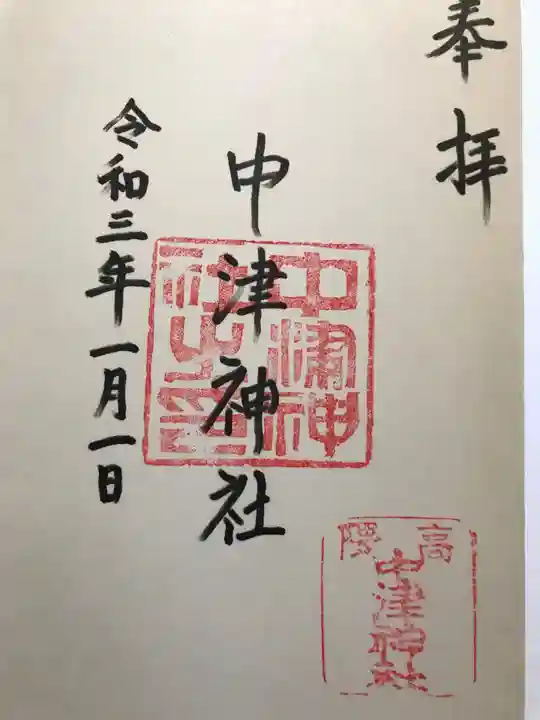 奉拝
中津神社
令和三年一月一日
中津神
社之印
高隈
中津神社